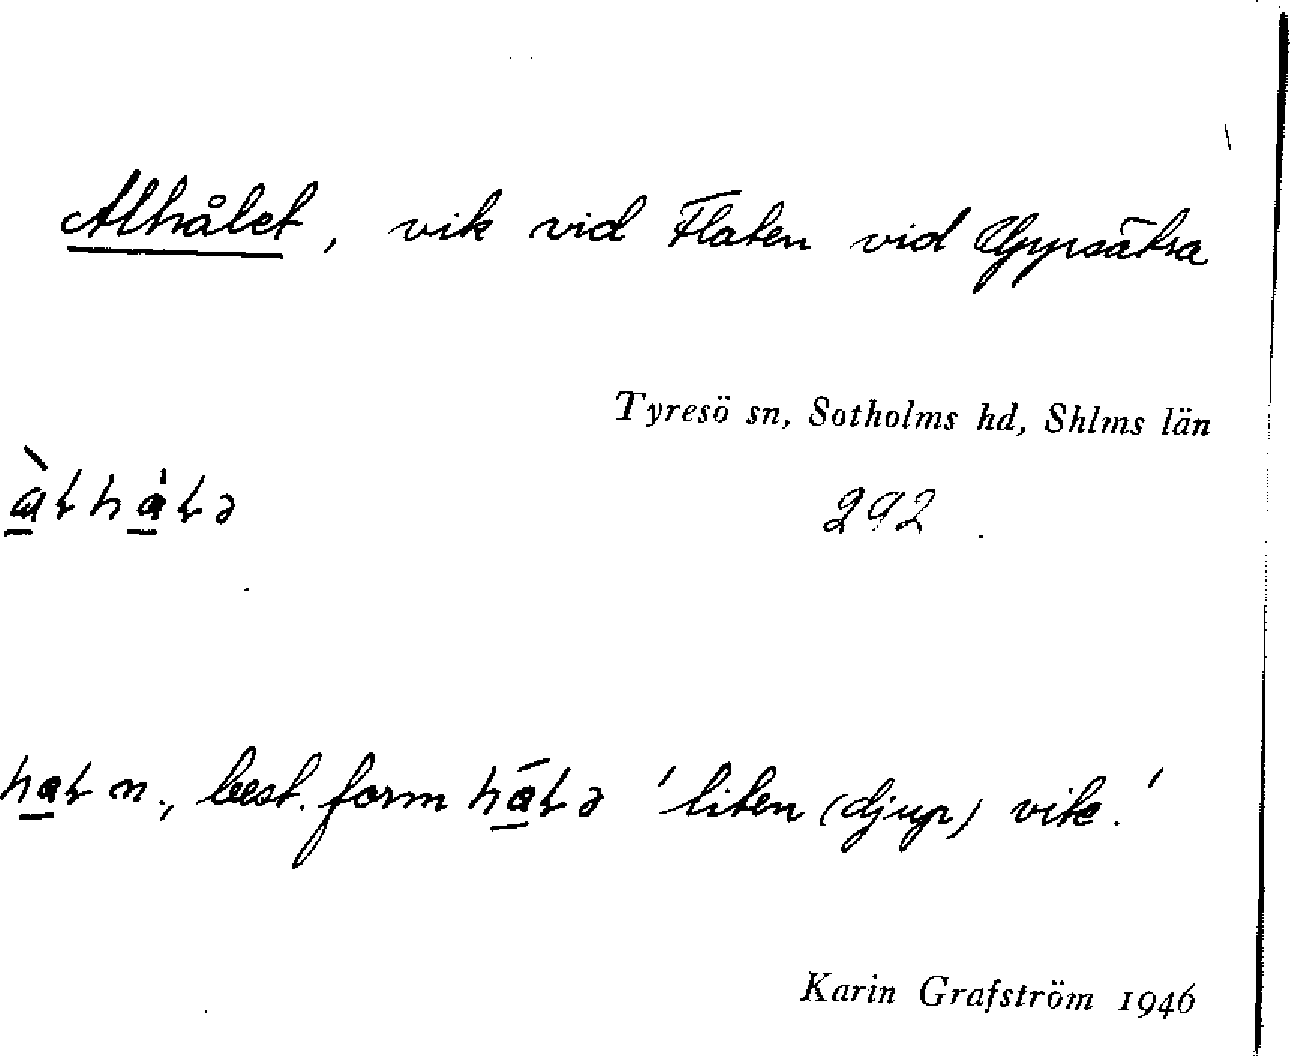 Alhålet, vik vid Flaten vid Uppsätra
Tyresö sn, Sotholms hd, Shlms län
292
n., best. form 'liten (djup) vik.'
Karin Grafström 1946